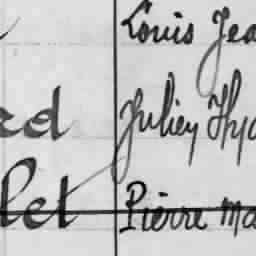 Louis Jea
rd Julien Hya
let Pierre Ma